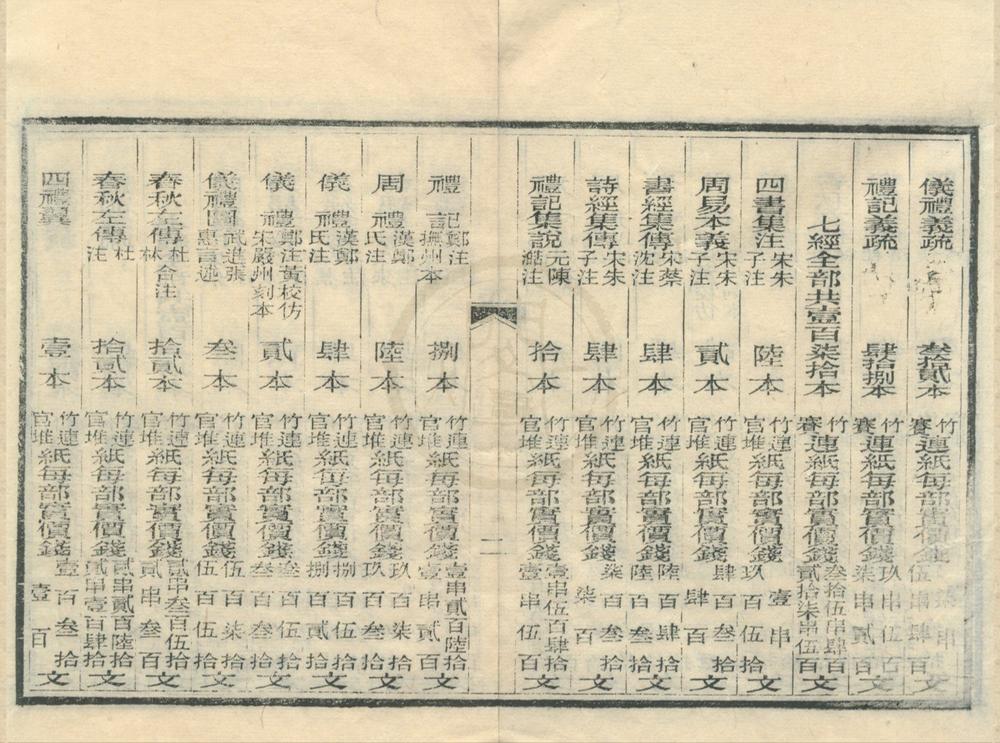 儀禮義疏 叁拾貳本 竹連紙每部實價錢 串伍串肆百文
禮記義疏 肆拾捌本 竹連賽連紙每部實價錢 玖串伍百柒串貳百文
七經全部共壹百柒拾本 竹連賽連紙每部實價錢 叁拾伍串肆百貳拾柒串伍百文
四書集注 宋朱子注 陸本 竹連官堆紙每部實價錢 壹串玖百伍拾文
周易本義 宋朱子注 貳本 竹連官堆紙每部實價錢 肆百叁拾肆百文
書經集傳 宋蔡沈注 肆本 竹連官堆紙每部實價錢 陸百肆拾陸百文
詩經集傳 宋朱子注 肆本 竹連官堆紙每部實價錢 柒百叁拾柒百文
禮記集說 元陳澔注 拾本 竹連官堆紙每部實價錢 壹串伍百肆拾壹串伍百文
二
禮記 鄭注撫州本 捌本 竹連官堆紙每部實價錢 壹串貳百陸拾壹串貳百文
周禮 漢鄭氏注 陸本 竹連官堆紙每部實價錢 玖百柒拾玖百叁拾文
儀禮 漢鄭氏注 肆本 竹連官堆紙每部實價錢 捌百伍拾捌百貳拾文
儀禮 鄭注黃校仿宋嚴州刻本 貳本 竹連官堆紙每部實價錢 叁百伍拾叁百叁拾文
儀禮圖 武進張惠言述 叁本 竹連官堆紙每部實價錢 伍百柒拾伍百伍拾文
春秋左傳 杜林合注 拾貳本 竹連官堆紙每部實價錢 貳串叁百伍拾貳串叁百文
春秋左傳 杜注 拾貳本 竹連官堆紙每部實價錢 貳串貳百陸拾貳串壹百肆拾文
四禮翼 壹本 竹連官堆紙每部實價錢 壹百叁拾壹百文